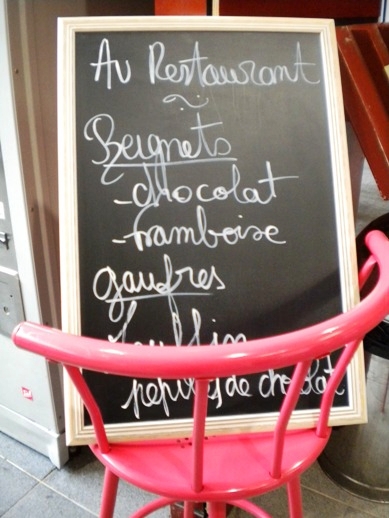 Au Restaurant
Beignets
- chocolat
- framboise
gaufres
pépites de chocolat